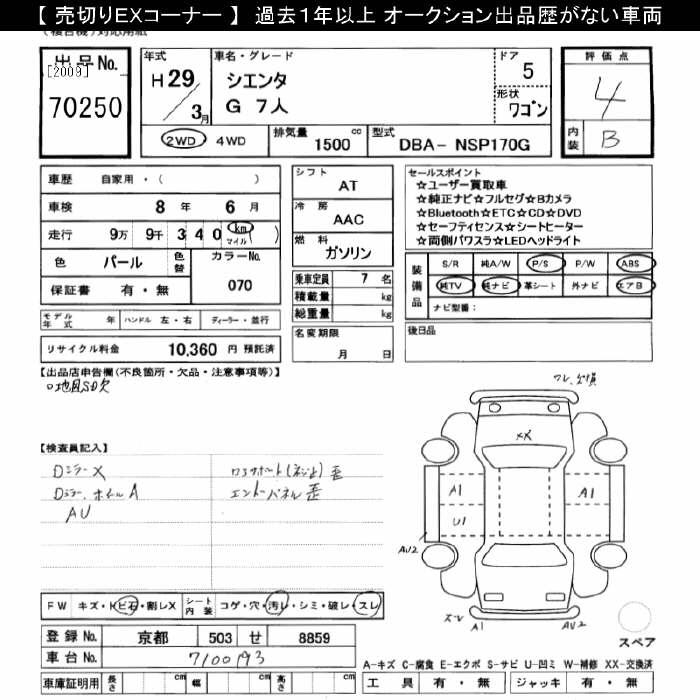 【 売切りEXコーナー 】 過去1年以上 オークション出品歴がない車両
出品No.
[2009]
70250
年式
H 29 / 3 月
車名・グレード
シエンタ
G 7人
ドア
5
形状
ワゴン
評価点
4
内装
B
2WD 4WD
排気量 1500 cc
型式 DBA- NSP170G
車歴 自家用・( )
車検 8 年 6 月
走行 9万 9千 3 4 0 km マイル
色 パール 色替 カラーNo. 070
保証書 有・無
シフト AT
冷房 AAC
燃料 ガソリン
乗車定員 7 名
積載量 kg
総重量 kg
名変期限
月 日
セールスポイント
☆ユーザー買取車
☆純正ナビ☆フルセグ☆Bカメラ
☆Bluetooth☆ETC☆CD☆DVD
☆セーフティセンス☆シートヒーター
☆両側パワスラ☆LEDヘッドライト
装備品
S/R 純A/W P/S P/W ABS
純TV 純ナビ 革シート 外ナビ エアB
ナビ型番:
後日品
モデル年式 年 ハンドル 左・右 ディーラー・並行
リサイクル料金 10,360 円 預託済
【出品店申告欄(不良箇所・欠品・注意事項等)】
○地図SD欠
【検査員記入】
Dミラー X
Dミラー、ホイール A
AU
エンドパネル 歪
XX
A1
U1
A1
AU2
A1
AU2
スレ
スペア
FW キズ・トビ石・割レX シート内装 コゲ・穴・汚レ・シミ・破レ・スレ
登録No. 京都 503 せ 8859
車台No. 7100193
車庫証明用 長さ cm 幅 cm 高さ cm
A-キズ C-腐食 E-エクボ S-サビ U-凹ミ W-補修 XX-交換済
工具 有・無 ジャッキ 有・無